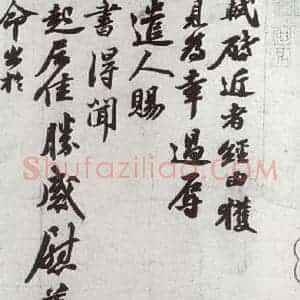 軾啓近者經由獲
見為幸過辱
遣人賜
書得聞
起居佳勝感慰
命出於
Shufaziliao.COM